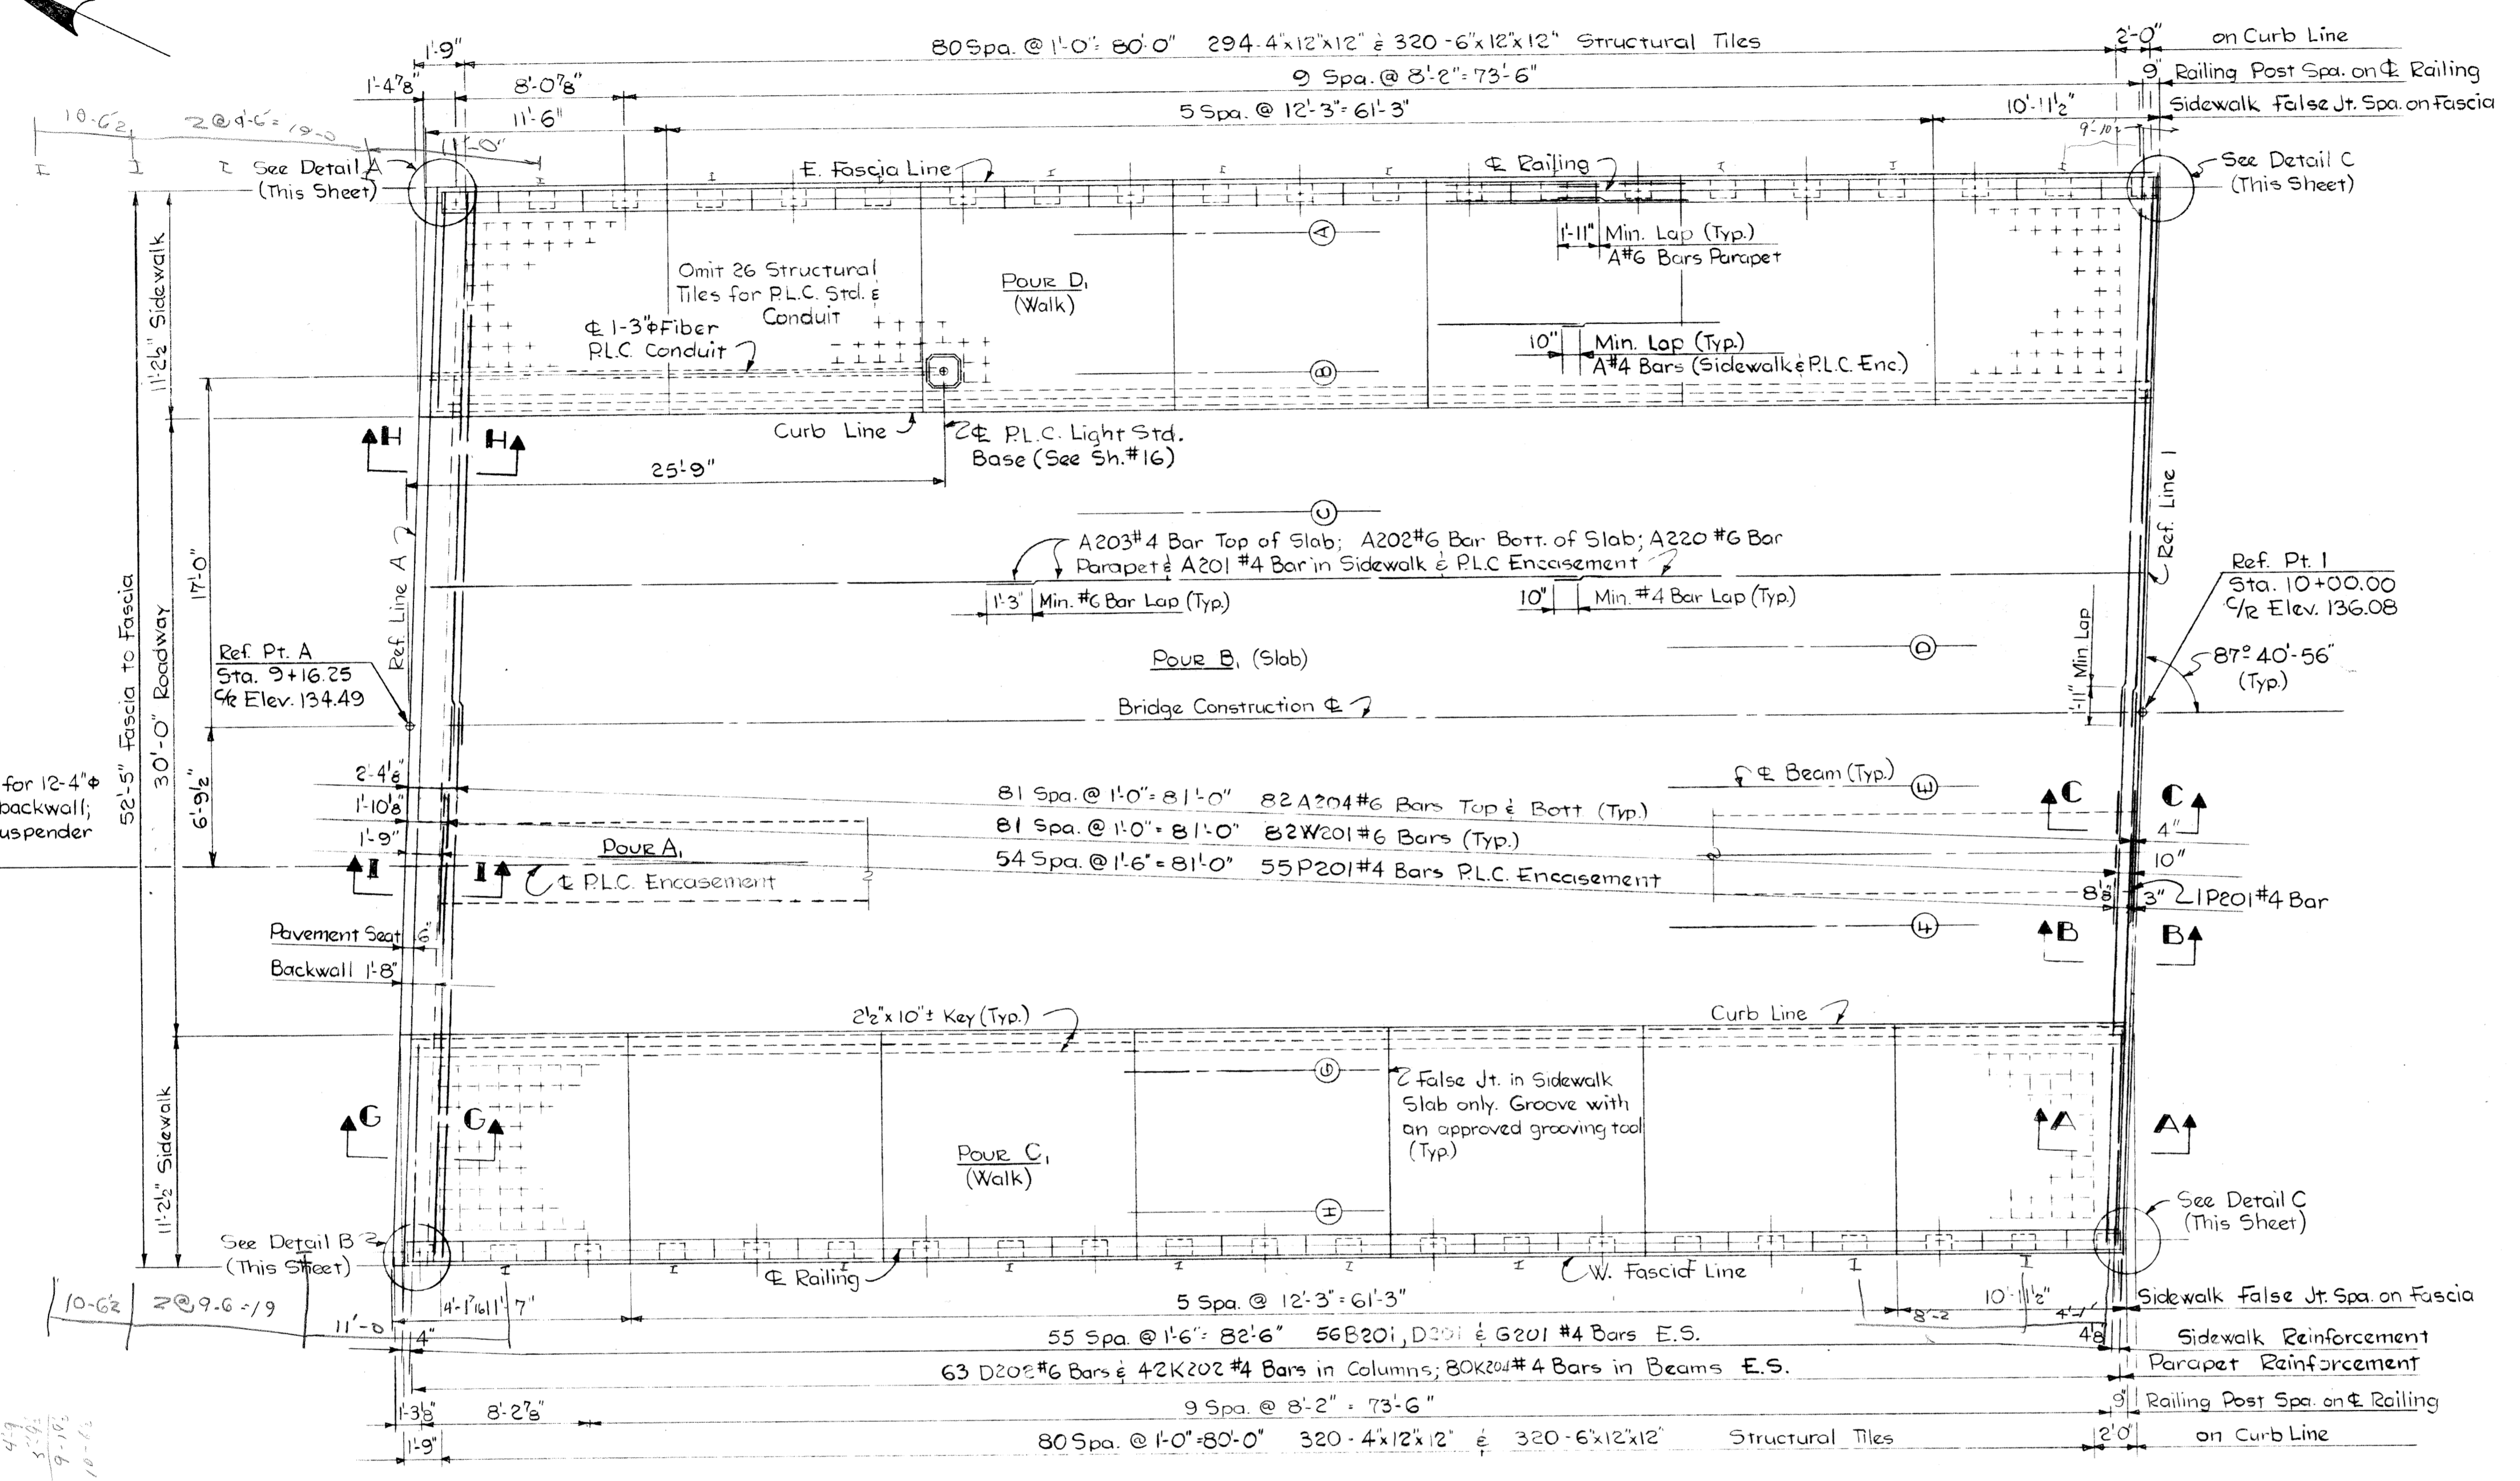 1'-9"
80 Spa. @ 1'-0" = 80'-0" 294-4"x12"x12" & 320-6"x12"x12" Structural Tiles
2'-0"
on Curb Line
1'-4⅞"
8'-0⅞"
9 Spa. @ 8'-2" = 73'-6"
9"
Railing Post Spa. on ℄ Railing
11'-6"
5 Spa. @ 12'-3" = 61'-3"
10'-11½"
Sidewalk False Jt. Spa. on Fascia
10-6½
2@9-6=19-0
11'-0"
9'-10½
See Detail A
(This Sheet)
E. Fascia Line
℄ Railing
See Detail C
(This Sheet)
A
1'-11" Min. Lap (Typ.)
A#6 Bars Parapet
11'-2½" Sidewalk
Omit 26 Structural
Tiles for P.L.C. Std. &
Conduit
POUR D₁
(Walk)
℄ 1-3"ϕ Fiber
P.L.C. Conduit
10" Min. Lap (Typ.)
A#4 Bars (Sidewalk & P.L.C. Enc.)
B
H H
Curb Line
℄ P.L.C. Light Std.
Base (See Sh.#16)
25'-9"
Ref. Line 1
C
A203#4 Bar Top of Slab; A202#6 Bar Bott. of Slab; A220 #6 Bar
Parapet & A201 #4 Bar in Sidewalk & P.L.C Encasement
17'-0"
Ref. Line A
1'-3" Min. #6 Bar Lap (Typ.)
10" Min. #4 Bar Lap (Typ.)
Ref. Pt. 1
Sta. 10+00.00
C/R Elev. 136.08
52'-5" Fascia to Fascia
30'-0" Roadway
Ref. Pt. A
Sta. 9+16.25
C/R Elev. 134.49
POUR B₁ (Slab)
D
1'-11" Min. Lap
87º 40'-56"
(Typ.)
Bridge Construction ℄
for 12-4"ϕ
backwall;
uspender
6'-9½"
2'-4⅛"
81 Spa. @ 1'-0" = 81'-0" 82A204#6 Bars Top & Bott (Typ.)
℄ Beam (Typ.)
E
C C
1'-10⅛"
81 Spa. @ 1'-0" = 81'-0" 82W201#6 Bars (Typ.)
4"
1'-9"
POUR A₁
54 Spa. @ 1'-6" = 81'-0" 55P201#4 Bars P.L.C. Encasement
10"
I I
℄ P.L.C. Encasement
8⅛"
3"
1P201#4 Bar
F
B B
Pavement Seat 6"
Backwall 1'-8"
2½"x10"± Key (Typ.)
Curb Line
G
False Jt. in Sidewalk
Slab only. Groove with
an approved grooving tool
(Typ.)
G G
A A
11'-2½" Sidewalk
POUR C₁
(Walk)
H
See Detail B
(This Sheet)
See Detail C
(This Sheet)
℄ Railing
W. Fascia Line
10-6½
2@9-6=19
11'-7"
5 Spa. @ 12'-3" = 61'-3"
10'-11½"
8'-2
4'-1"
Sidewalk False Jt. Spa. on Fascia
11'-0
4"
55 Spa. @ 1'-6" = 82'-6" 56B201, D201 & G201 #4 Bars E.S.
4⅛"
Sidewalk Reinforcement
63 D202#6 Bars & 42K202 #4 Bars in Columns; 80K204#4 Bars in Beams E.S.
Parapet Reinforcement
1'-3⅛"
8'-2⅞"
9 Spa. @ 8'-2" = 73'-6"
9"
Railing Post Spa. on ℄ Railing
1'-9"
80 Spa. @ 1'-0" = 80'-0" 320-4"x12"x12" & 320-6"x12"x12" Structural Tiles
2'0"
on Curb Line